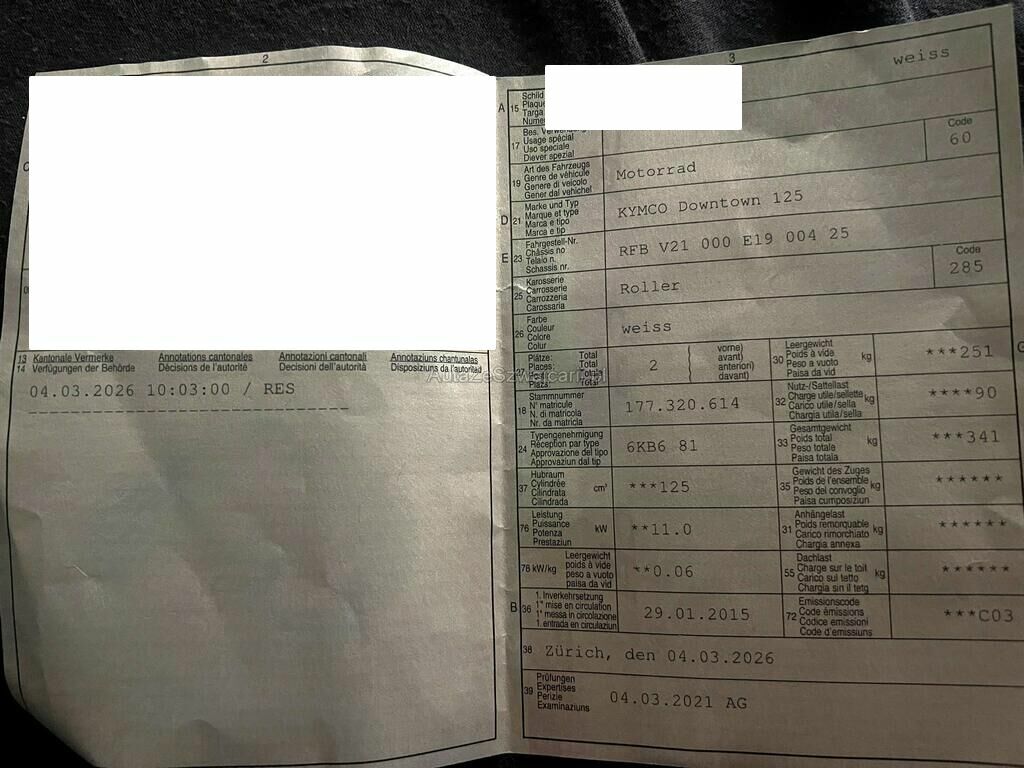 2
13 Kantonale Vermerke Annotations cantonales Annotazioni cantonali Annotaziuns chantunalas
14 Verfügungen der Behörde Décisions de l'autorité Decisioni dell'autorità Disposiziuns da l'autoritad
04.03.2026 10:03:00 / RES
3 weiss
A 15 Schild
Plaque
Targa
17 Usage spécial
Uso speciale
Diever spezial
Code
60
19 Art des Fahrzeugs
Genre de véhicule
Genere di veicolo
Gener dal vehichel
Motorrad
D 21 Marke und Typ
Marque et type
Marca e tipo
Marca e tip
KYMCO Downtown 125
E 23 Fahrgestell-Nr.
Châssis no
Telaio n.
Schassis nr.
RFB V21 000 E19 004 25
25 Karosserie
Carrosserie
Carrozzeria
Carossaria
Roller
Code
285
26 Farbe
Couleur
Colore
Colur
weiss
Plätze: Total
Places: Total
Posti: Totale
Plazs: Total
2
( vorne)
( avant)
anteriori)
( davant)
30 Leergewicht
Poids à vide
Peso a vuoto
Paisa da vid
kg
***251
18 Stammnummer
N° matricule
N. di matricola
Nr. da matricla
177.320.614
32 Nutz-/Sattellast
Charge utile/sellette
Carico utile/sella
Chargia utila/sella
kg
****90
24 Typengenehmigung
Réception par type
Approvazione del tipo
Approvaziun dal tip
6KB6 81
33 Gesamtgewicht
Poids total
Peso totale
Paisa totala
kg
***341
37 Hubraum
Cylindrée
Cilindrata
Cilindrada
cm³
***125
35 Gewicht des Zuges
Poids de l'ensemble
Peso del convoglio
Paisa cumposiziun
kg
******
76 Leistung
Puissance
Potenza
Prestaziun
kW
**11.0
31 Anhängelast
Poids remorquable
Carico rimorchiato
Chargia annexa
kg
******
78 kW/kg
Leergewicht
poids à vide
peso a vuoto
paisa da vid
**0.06
55 Dachlast
Charge sur le toit
Carico sul tetto
Chargia sin il tetg
kg
******
B 36 1. Inverkehrsetzung
1re mise en circulation
1a messa in circolazione
1. entrada en circulaziun
29.01.2015
72 Emissionscode
Code émissions
Codice emissioni
Code d'emissiuns
***C03
38 Zürich, den 04.03.2026
39 Prüfungen
Expertises
Perizie
Examinaziuns
04.03.2021 AG
AutazeSzwajcarii.pl